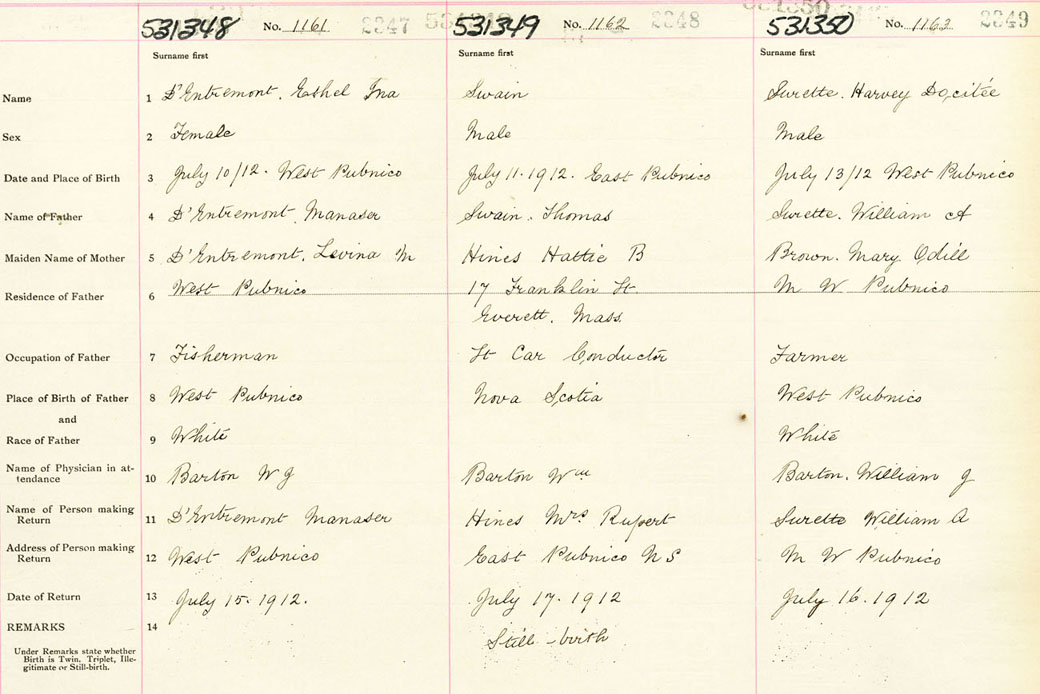 531348 No. 1161 2347 531349 No. 1162 2348 531350 No. 1163 2349
Surname first Surname first Surname first
Name 1 D'Entremont. Ethel Ina Swain Surette. Harvey Docitée
Sex 2 Female Male Male
Date and Place of Birth 3 July 10/12. West Pubnico July 11.1912. East Pubnico July 13/12 West Pubnico
Name of Father 4 D'Entremont Manaser Swain. Thomas Surette. William A
Maiden Name of Mother 5 D'Entremont. Levina M Hines Hattie B Brown. Mary Odill
Residence of Father 6 West Pubnico 17 Franklin St. M W Pubnico
Everett. Mass.
Occupation of Father 7 Fisherman St Car Conductor Farmer
Place of Birth of Father 8 West Pubnico Nova Scotia West Pubnico
and
Race of Father 9 White White
Name of Physician in at-
tendance 10 Barton W G Barton Wm Barton. William G
Name of Person making
Return 11 D'Entremont Manaser Hines Mrs Rupert Surette William A
Address of Person making
Return 12 West Pubnico East Pubnico N S M W Pubnico
Date of Return 13 July 15.1912. July 17.1912 July 16.1912
REMARKS 14 Still-birth
Under Remarks state whether
Birth is Twin, Triplet, Ille-
gitimate or Still-birth.